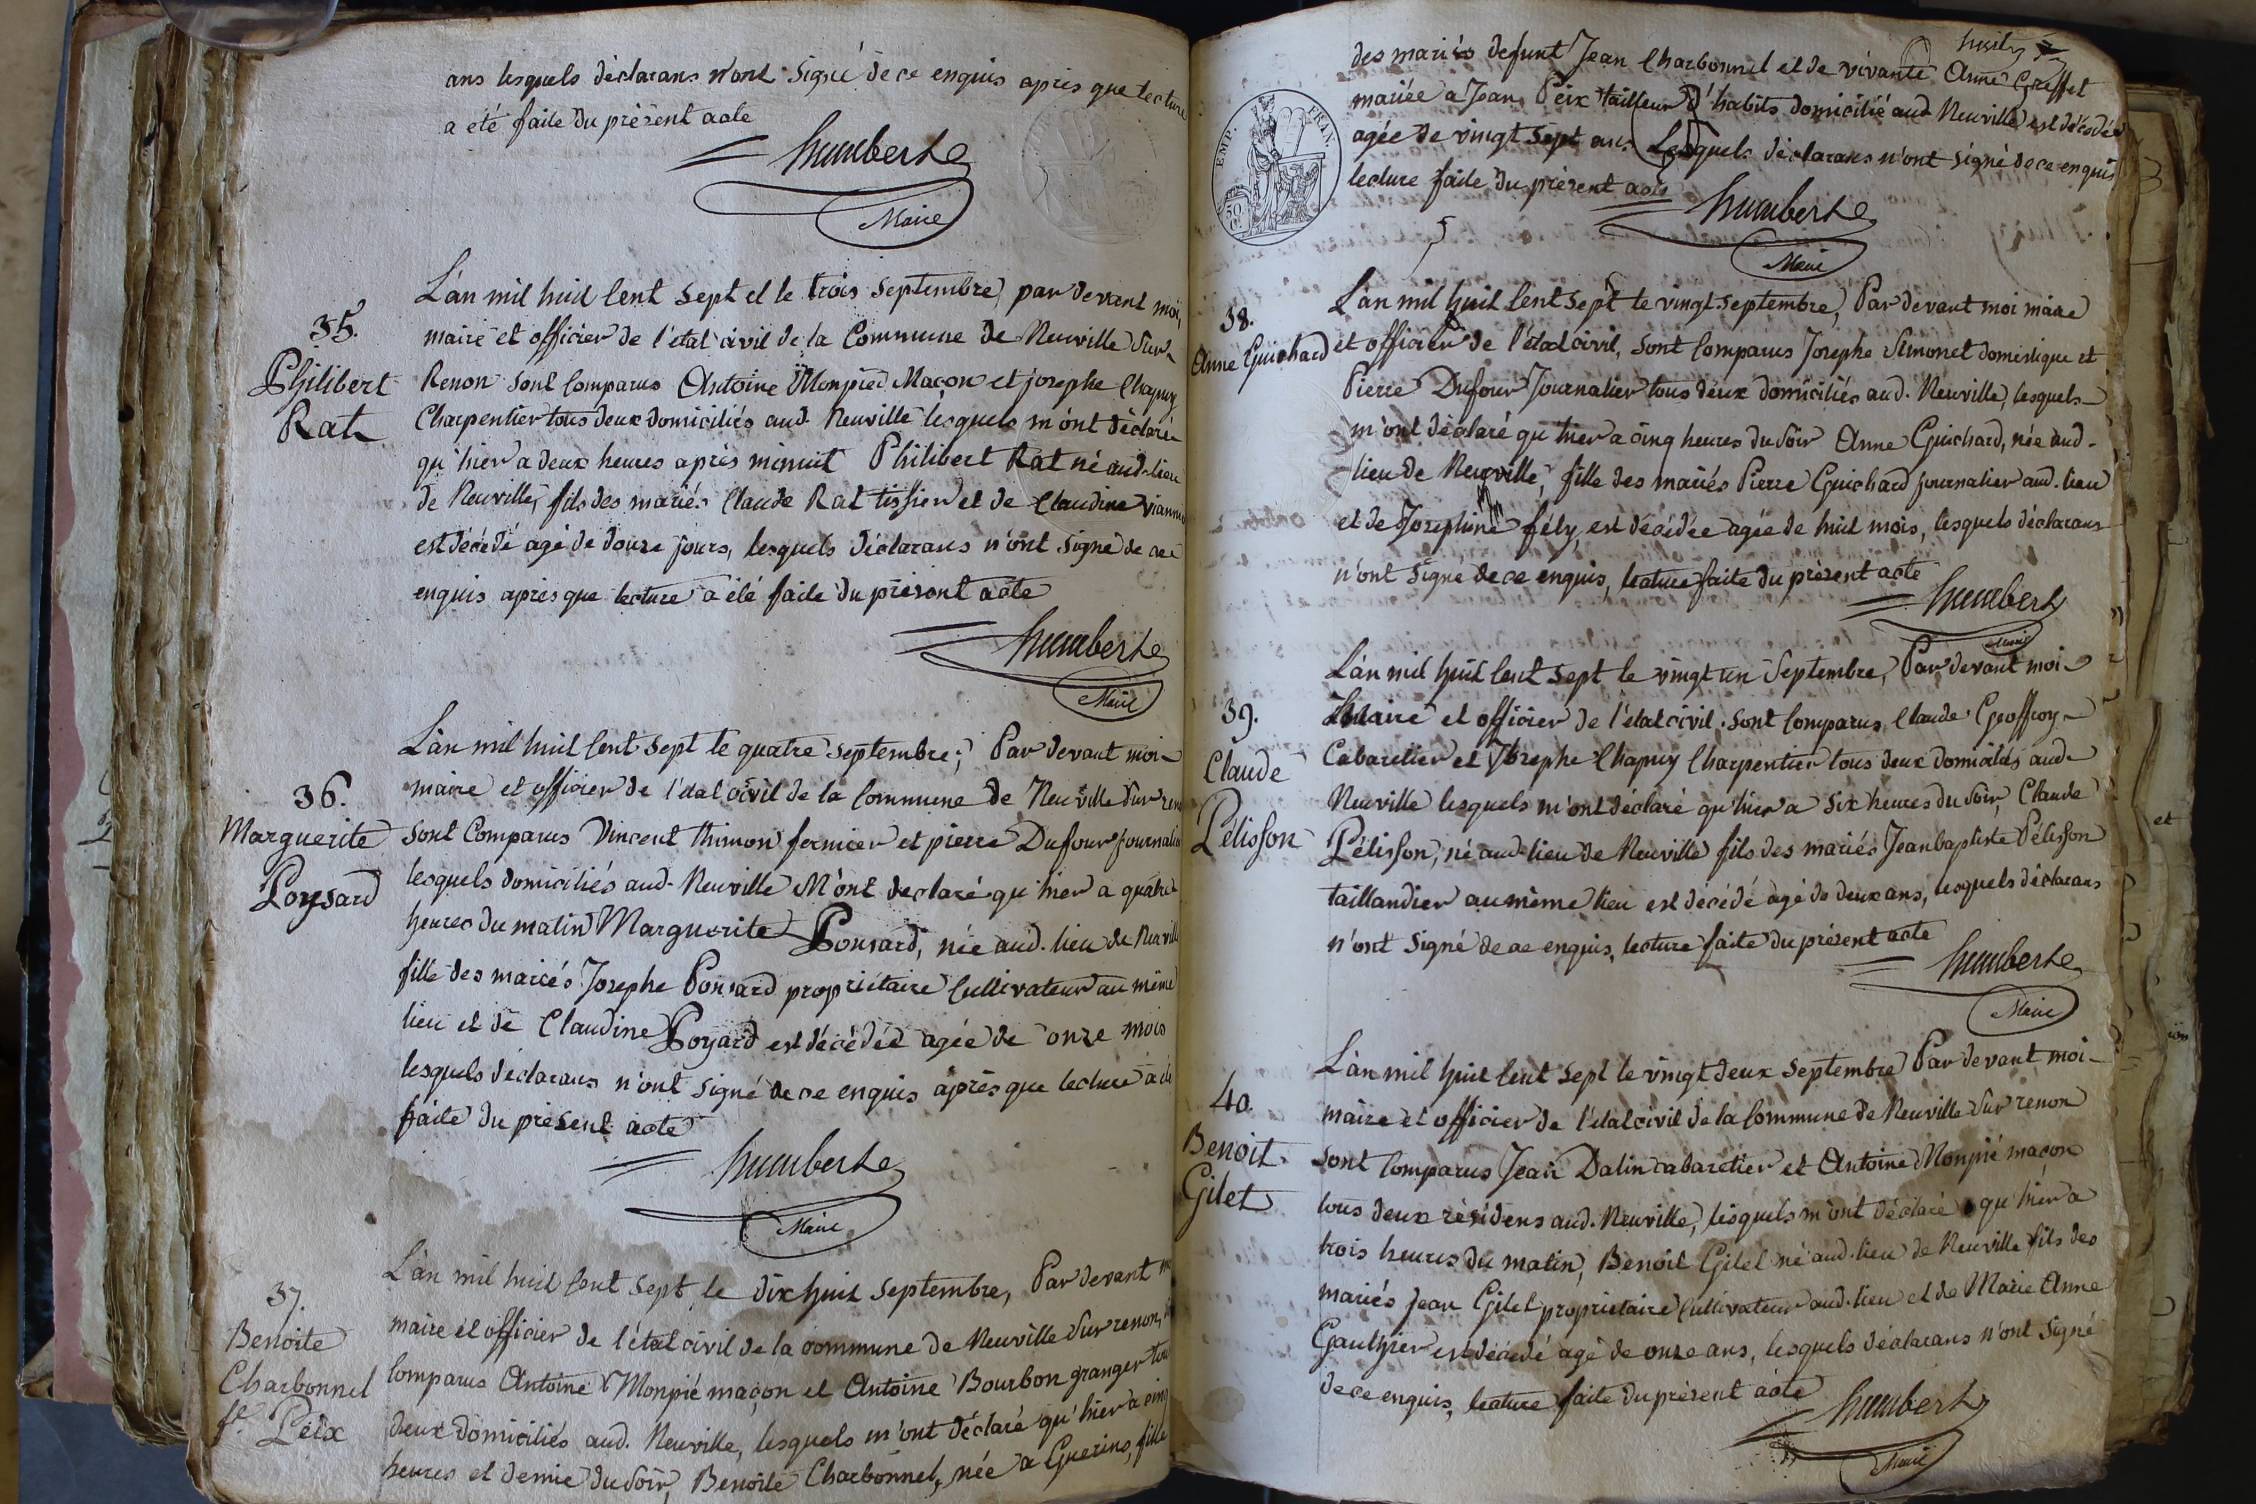 ans lesquels déclarans n'ont signé de ce enquis après que lecture
a été faite du présent acte
humbert
Maire
35.
Philibert
Rat
L'an mil huit Cent sept et le trois septembre, par devant moi,
maire et officier de l'état civil de la Commune de Neuville sur
Renon sont Comparus Antoine Monpied Maçon et josephe Chapuy
Charpentier tous deux domiciliés aud. Neuville lesquels m'ont déclaré
qu'hier a deux heures après minuit Philibert Rat né aud. lieu
de Neuville, fils des mariés Claude Rat tissier et de Claudine
est décédé agé de douze jours, lesquels déclarans n'ont signé de ce
enquis après que lecture a été faite du présent acte
humbert
Maire
36.
Marguerite
Ponsard
L'an mil huit Cent sept le quatre septembre, Par devant moi
maire et officier de l'état civil de la Commune de Neuville sur
sont Comparus Vincent thimon fermier et pierre Dufour
lesquels domiciliés aud. Neuville M'ont declaré qu'hier a quatre
heures du matin Marguerite Ponsard, née aud. lieu de Neuville
fille des mariés Josephe Ponsard propriétaire Cultivateur au même
lieu et de Claudine est décédée agée de onze mois
lesquels déclarans n'ont signé de ce enquis après que lecture a
faite du présent acte
humbert
Maire
37.
Benoite
Charbonnel
fe. Peix
L'an mil huit Cent sept le dix huit septembre, Par devant
maire et officier de l'état civil de la commune de Neuville sur renon,
Comparus Antoine Monpié maçon et Antoine Bourbon granger
deux domiciliés aud. Neuville, lesquels m'ont déclaré qu'hier a cinq
heures et demie du soir, Benoite Charbonnel, née a Guerins, fille
des mariés defunt Jean Charbonnel et de vivante Anne Greffet
mariée a Jean Peix tailleur d'habits domicilié aud. Neuville est décédée
agée de vingt sept ans Lesquels déclarans n'ont signé de ce enquis
lecture faite du présent acte
EMP. FRAN.
50 C.
humbert
Maire
38.
Anne Guichard
L'an mil huit Cent sept le vingt septembre, Par devant moi maire
et officier de l'état civil, sont Comparus Josephe Simonet domestique et
Pierre Dufour Journalier tous deux domiciliés aud. Neuville, lesquels
m'ont déclaré qu'hier a cinq heures du soir Anne Guichard, née aud.
lieu de Neuville, fille des mariés Pierre Guichard journalier aud. lieu
et de Josephine fély, est décédée agée de huit mois, lesquels déclarans
n'ont signé de ce enquis, lecture faite du présent acte
humbert
Maire
39.
Claude
Pélisson
L'an mil huit Cent sept le vingt un Septembre, Par devant moi
Maire et officier de l'état civil. sont Comparus, Claude Geoffroy
Cabaretier et Josephe Chapuy Charpentier tous deux domiciliés aud.
Neuville lesquels m'ont déclaré qu'hier a six heures du soir, Claude
Pélisson, né aud. lieu de Neuville fils des mariés Jean baptiste Pélisson
taillandier au même lieu est décédé agé de deux ans, lesquels déclarans
n'ont signé de ce enquis, lecture faite du présent acte
humbert
Maire
40.
Benoit
Gilet
L'an mil huit Cent sept le vingt deux septembre Par devant moi
maire et officier de l'état civil de la Commune de Neuville sur renon
sont Comparus Jean Dalin cabaretier et Antoine Monpié maçon
tous deux résidens aud. Neuville, lesquels m'ont déclaré qu'hier a
trois heures du matin, Benoit Gilet né aud. lieu de Neuville fils des
mariés Jean Gilet proprietaire Cultivateur aud. lieu et de Marie Anne
Gauthier est décédé agé de onze ans, lesquels déclarans n'ont signé
de ce enquis, lecture faite du présent acte
humbert
Maire